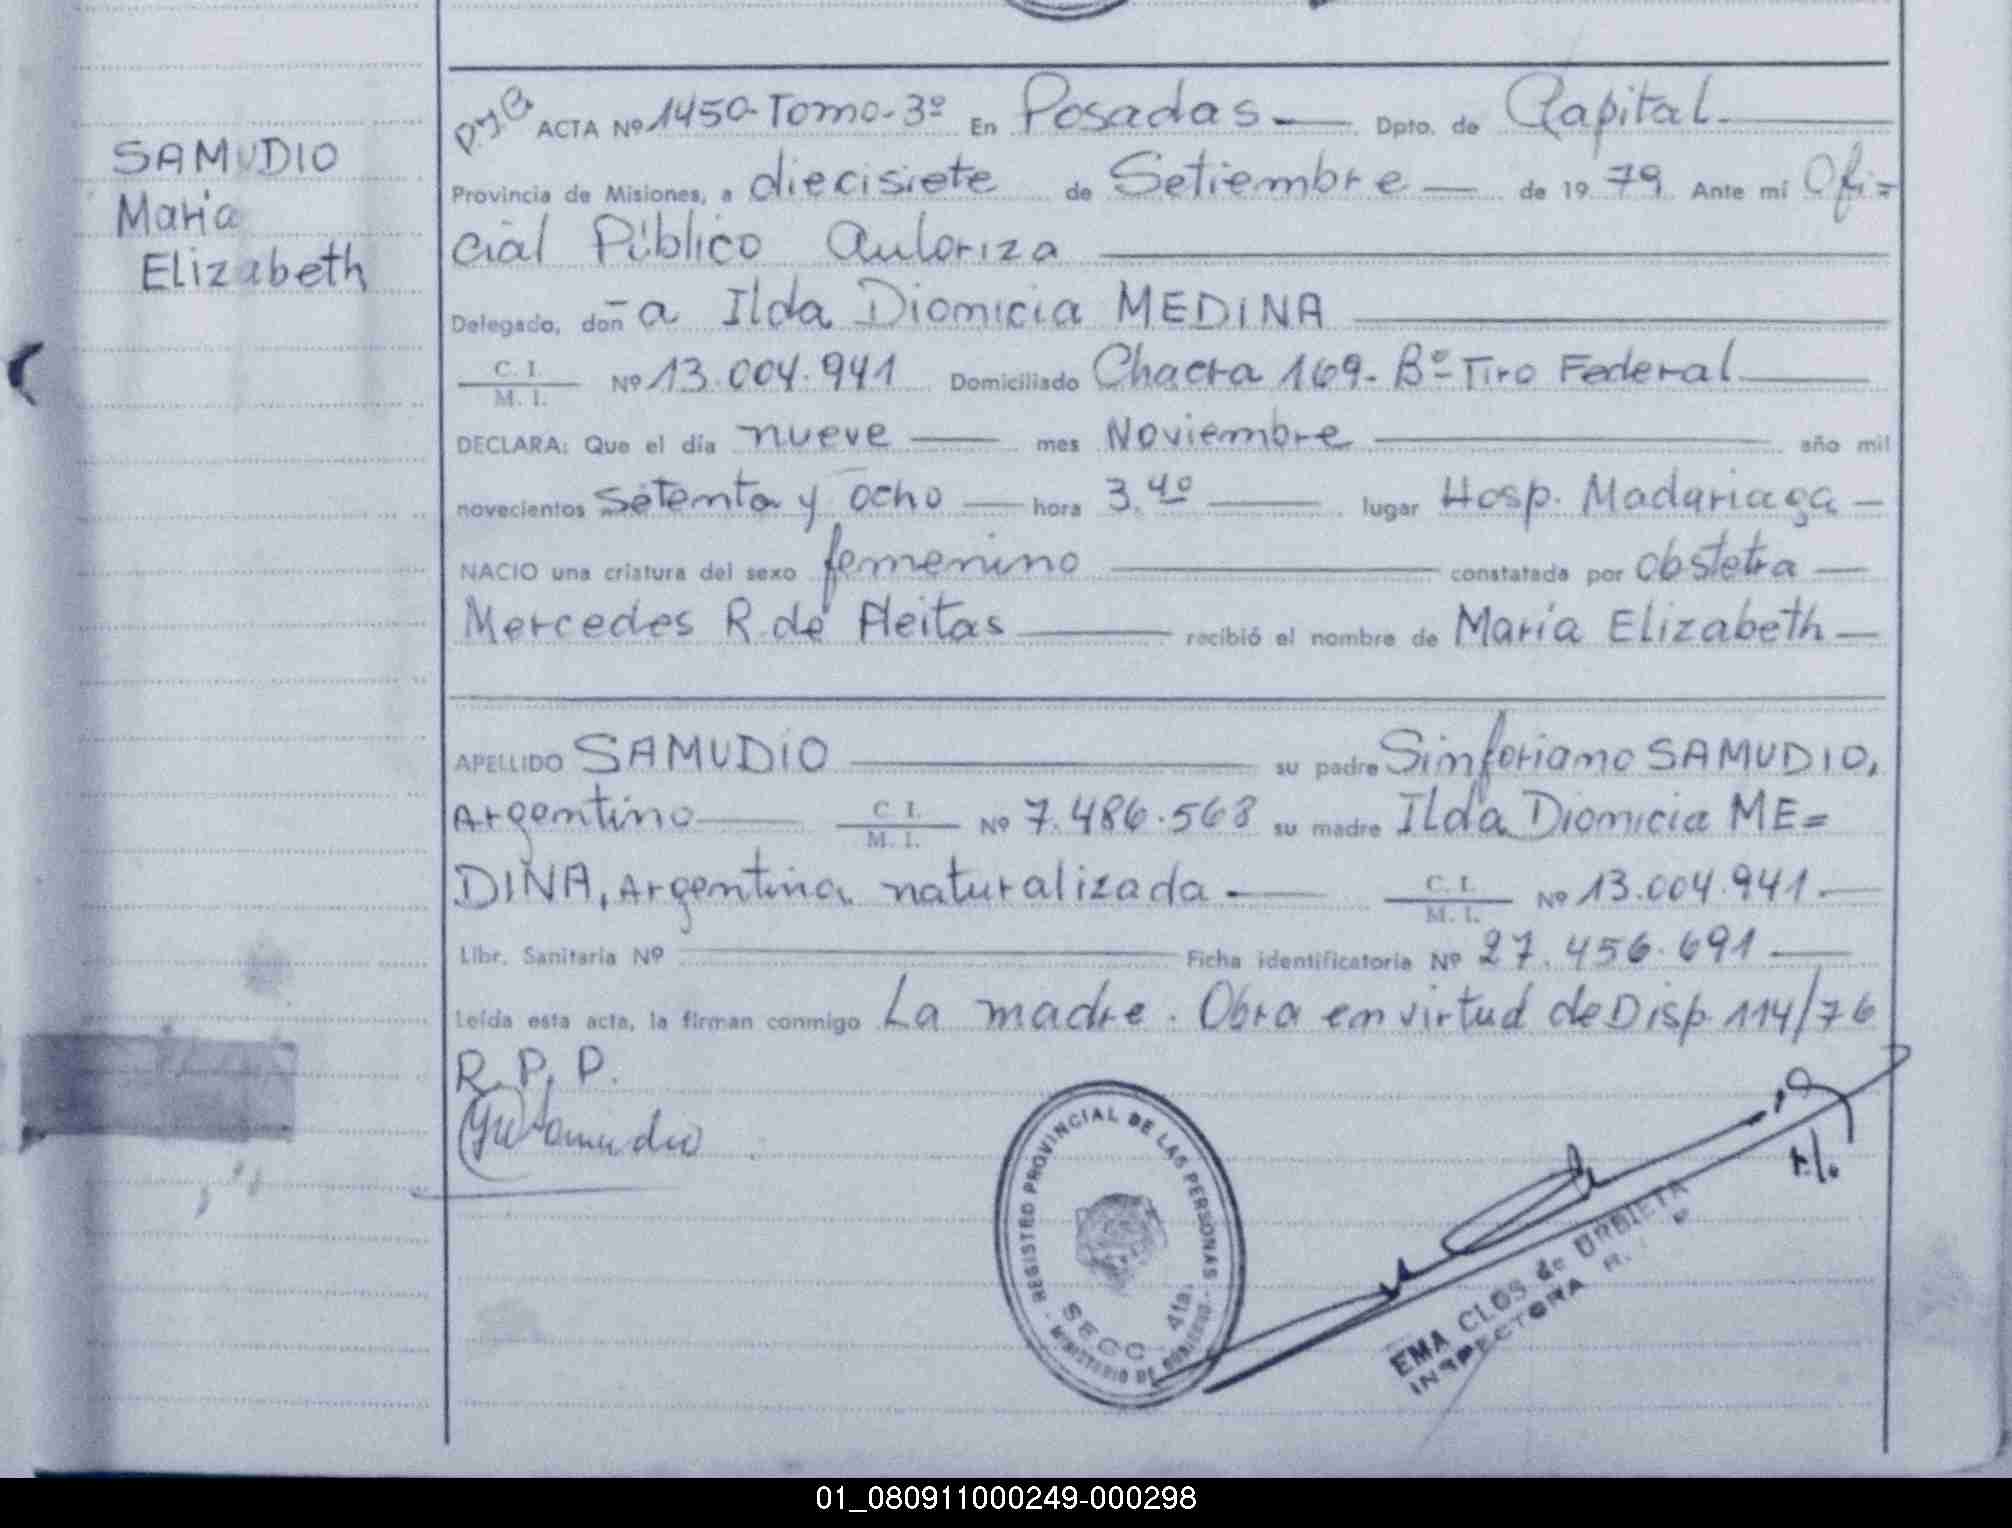 SAMUDIO
Maria
Elizabeth
P.y.B ACTA Nº 1450-Tomo-3º En Posadas — Dpto. de Capital
Provincia de Misiones, a diecisiete de Setiembre — de 1979. Ante mí Ofi=
cial Público Autoriza
Delegado, don-a Ilda Dionicia MEDINA
C. I.
M. I. Nº 13.004.941 Domiciliado Chacra 169. Bº Tiro Federal
DECLARA: Que el día nueve — mes Noviembre — año mil
novecientos setenta y ocho — hora 3.40 — lugar Hosp. Madariaga —
NACIO una criatura del sexo femenino — constatada por obstetra —
Mercedes R. de Fleitas — recibió el nombre de María Elizabeth —
APELLIDO SAMUDIO — su padre Sinforiano SAMUDIO,
Argentino — C. I.
M. I. Nº 7.486.563 su madre Ilda Dionicia ME=
DINA, Argentina naturalizada — C. I.
M. I. Nº 13.004.941.—
Libr. Sanitaria Nº — Ficha identificatoria Nº 27.456.691 —
Leída esta acta, la firman conmigo La madre. Obra en virtud de Disp. 114/76
R. P. P.
REGISTRO PROVINCIAL DE LAS PERSONAS
SECC. 4ta.
MINISTERIO DE GOBIERNO
EMA CLOS de URBIETA
INSPECTORA R. P
01_080911000249-000298